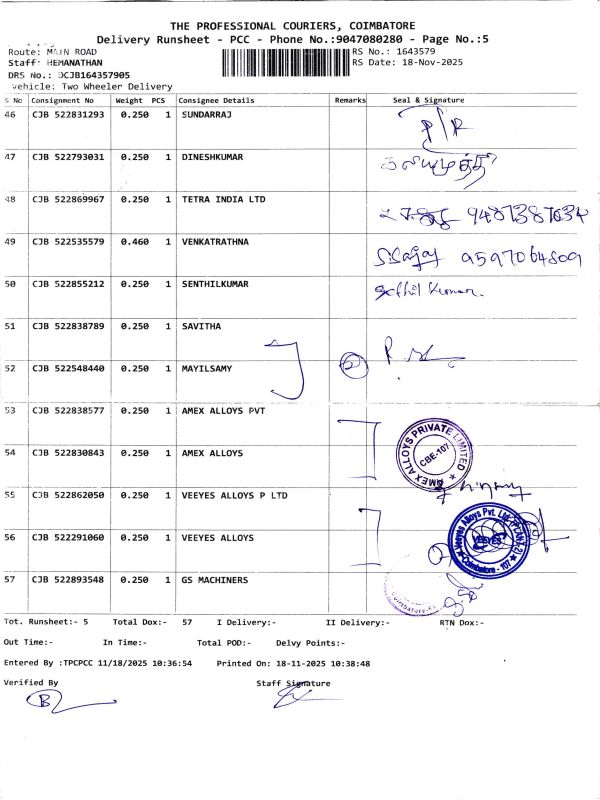 THE PROFESSIONAL COURIERS, COIMBATORE
Delivery Runsheet - PCC - Phone No.:9047080280 - Page No.:5
Route: MAIN ROAD RS No.: 1643579
Staff: HEMANATHAN RS Date: 18-Nov-2025
DRS No.: DCJB164357905
Vehicle: Two Wheeler Delivery
S No Consignment No Weight PCS Consignee Details Remarks Seal & Signature
46 CJB 522831293 0.250 1 SUNDARRAJ
47 CJB 522793031 0.250 1 DINESHKUMAR
48 CJB 522869967 0.250 1 TETRA INDIA LTD 9487387634
49 CJB 522535579 0.460 1 VENKATRATHNA S.Sajay 9597064809
50 CJB 522855212 0.250 1 SENTHILKUMAR Sethil Kumar.
51 CJB 522838789 0.250 1 SAVITHA
52 CJB 522548440 0.250 1 MAYILSAMY 2
53 CJB 522838577 0.250 1 AMEX ALLOYS PVT
54 CJB 522830843 0.250 1 AMEX ALLOYS AMEX ALLOYS PRIVATE LIMITED CBE-107
55 CJB 522862050 0.250 1 VEEYES ALLOYS P LTD
56 CJB 522291060 0.250 1 VEEYES ALLOYS Veeyes Alloys Pvt. Ltd. VEEYES Coimbatore - 107
57 CJB 522893548 0.250 1 GS MACHINERS Coimbatore
Tot. Runsheet:- 5 Total Dox:- 57 I Delivery:- II Delivery:- RTN Dox:-
Out Time:- In Time:- Total POD:- Delvy Points:-
Entered By :TPCPCC 11/18/2025 10:36:54 Printed On: 18-11-2025 10:38:48
Verified By Staff Signature
B